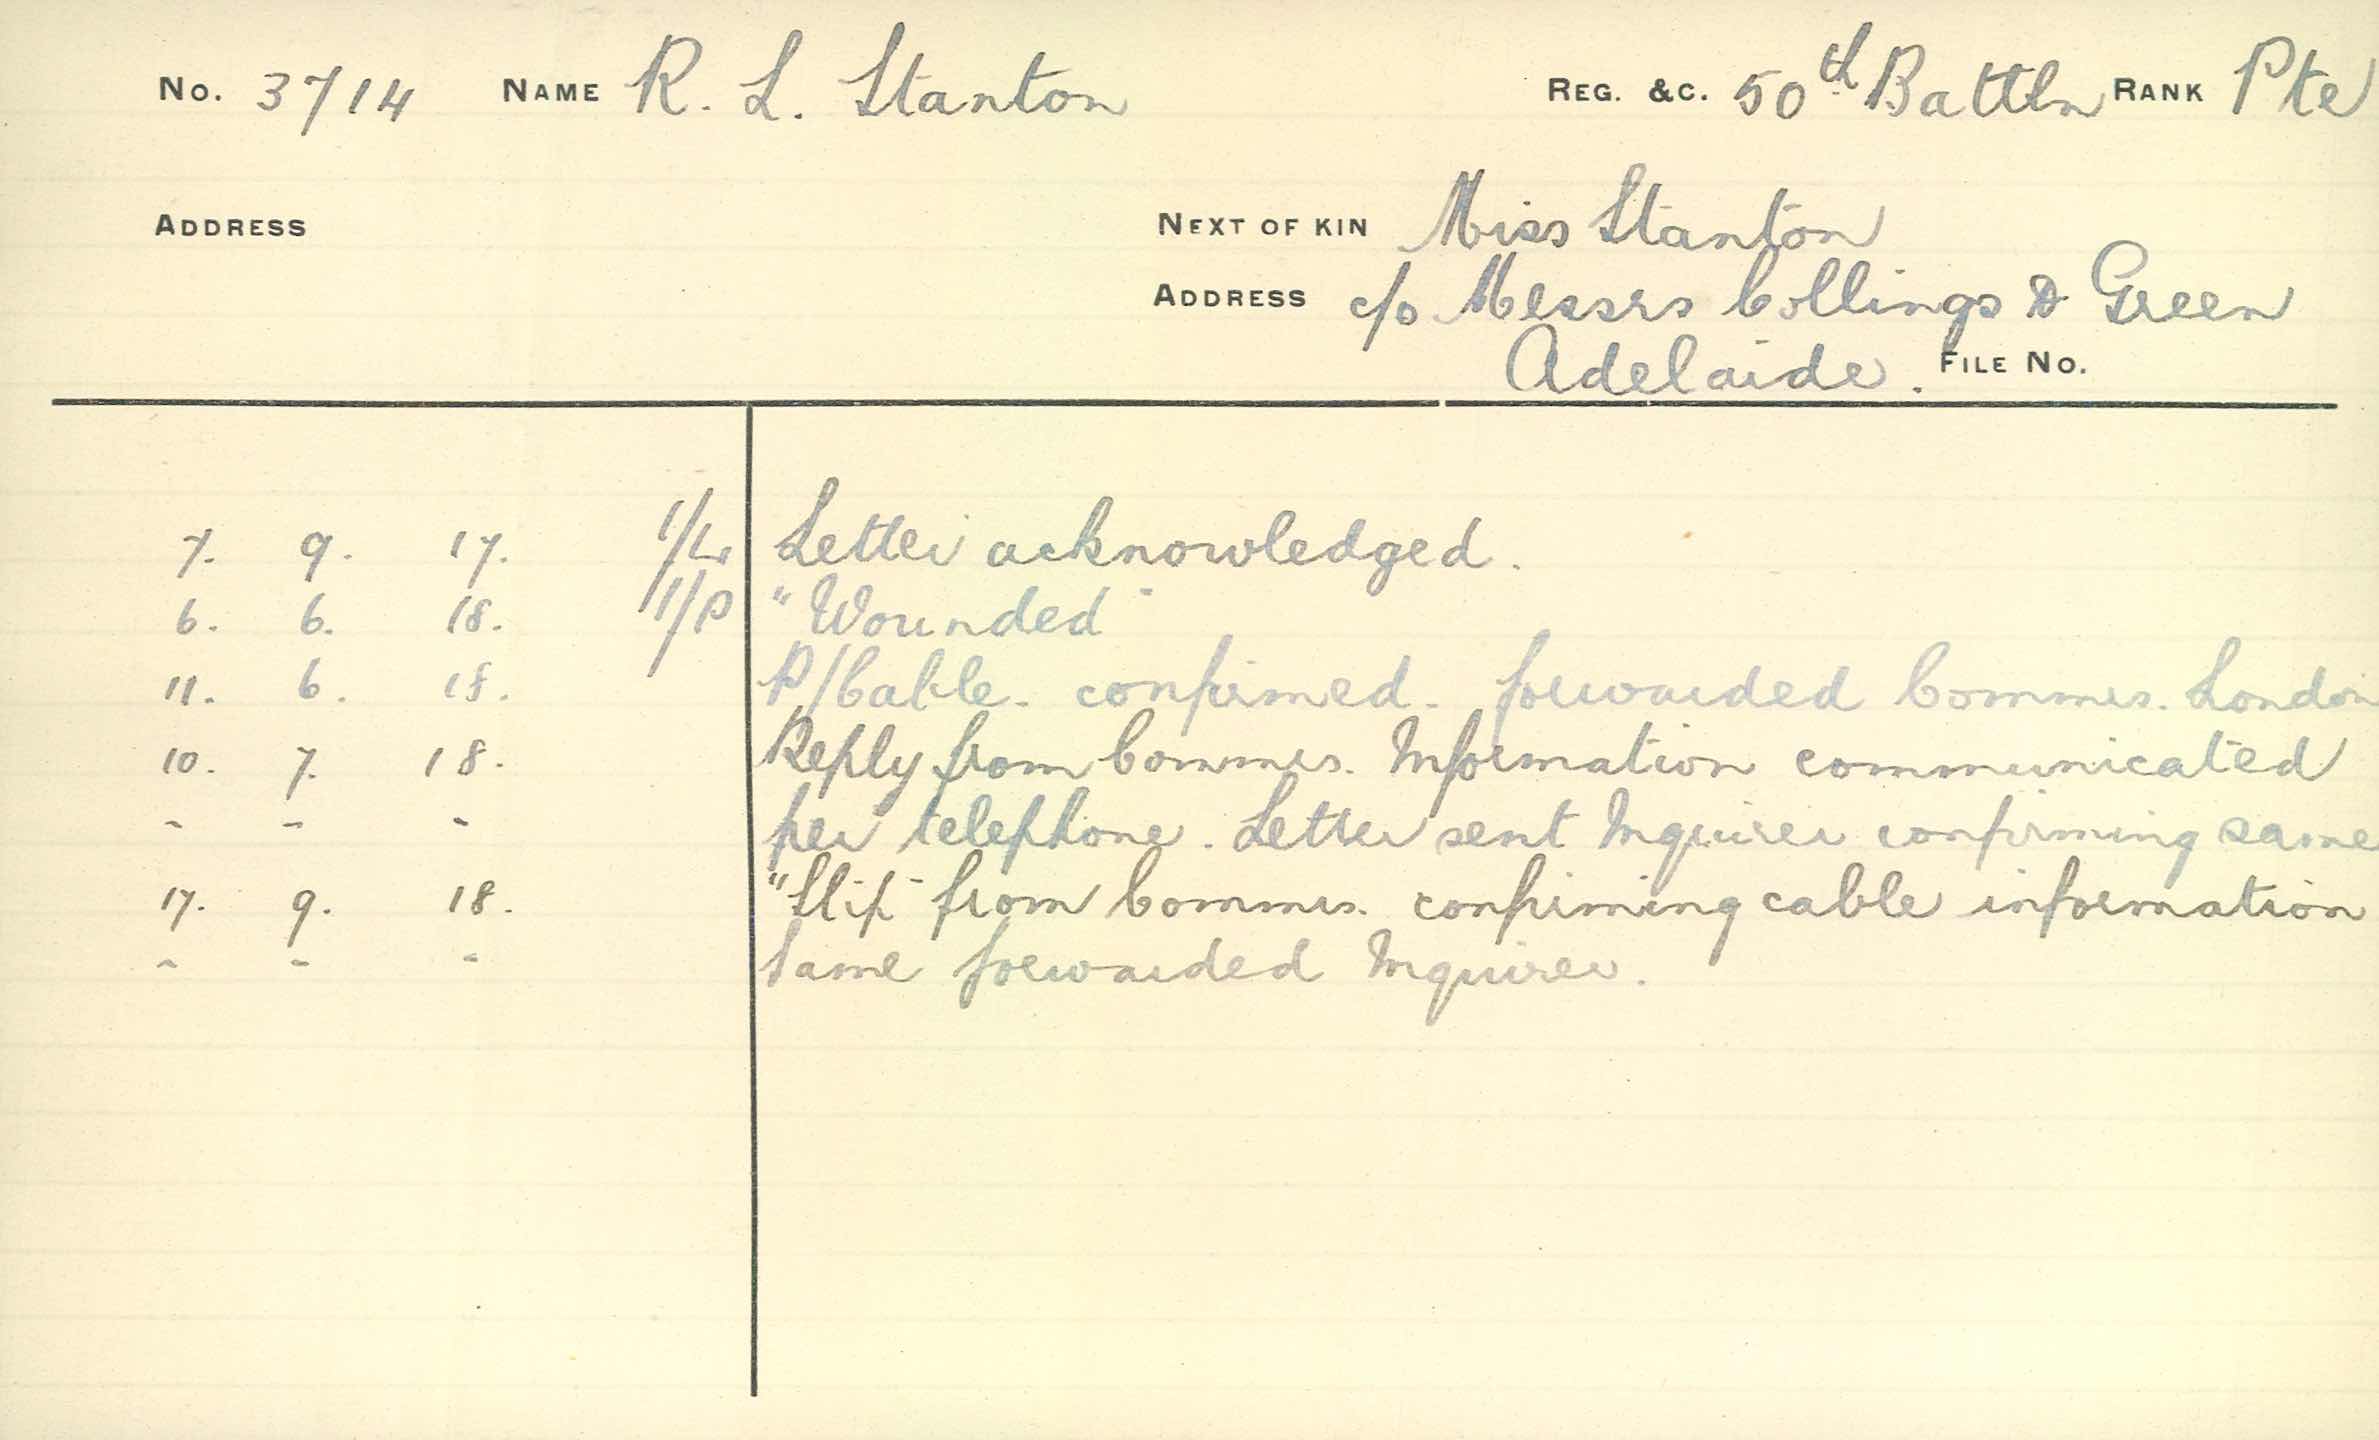 No. 3714 NAME R. L. Stanton REG. &C. 50th Battln RANK Pte
ADDRESS NEXT OF KIN Miss Stanton
ADDRESS c/o Messrs Collings & Green
Adelaide. FILE NO.
7. 9. 17. 1/L. Letter acknowledged.
6. 6. 18. 11/P "Wounded"
11. 6. 18. P/Cable. confirmed. forwarded Commrs. London
10. 7. 18. Reply from Commrs. Information communicated
- - - per telephone. Letter sent Inquirer confirming same
17. 9. 18. "Slip" from Commrs. confirming cable information
- - - Same forwarded Inquirer.